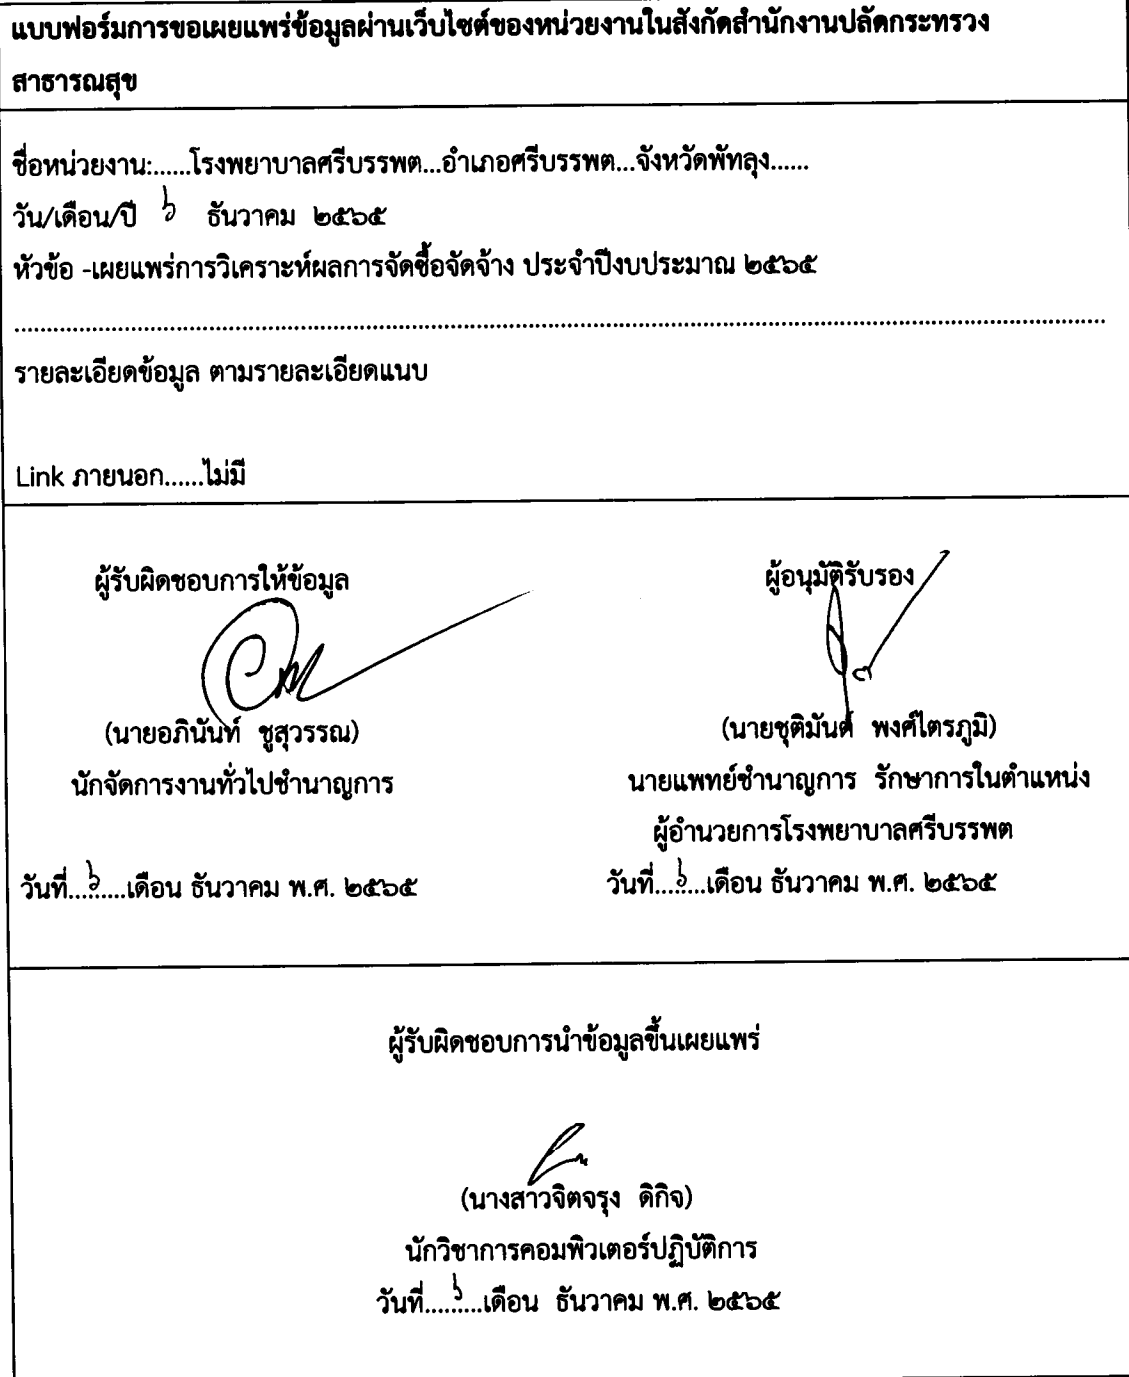 แบบฟอร์มการขอเผยแพร่ข้อมูลผ่านเว็บไซต์ของหน่วยงานในสังกัดสำนักงานปลัดกระทรวง
สาธารณสุข
ชื่อหน่วยงาน:......โรงพยาบาลศรีบรรพต...อำเภอศรีบรรพต...จังหวัดพัทลุง......
วัน/เดือน/ปี ๖ ธันวาคม ๒๕๖๕
หัวข้อ -เผยแพร่การวิเคราะห์ผลการจัดซื้อจัดจ้าง ประจำปีงบประมาณ ๒๕๖๕
รายละเอียดข้อมูล ตามรายละเอียดแนบ
Link ภายนอก......ไม่มี
ผู้รับผิดชอบการให้ข้อมูล
(นายอภินันท์ ชูสุวรรณ)
นักจัดการงานทั่วไปชำนาญการ
วันที่...๖.....เดือน ธันวาคม พ.ศ. ๒๕๖๕
ผู้อนุมัติรับรอง
(นายชุติมันต์ พงศ์ไตรภูมิ)
นายแพทย์ชำนาญการ รักษาการในตำแหน่ง
ผู้อำนวยการโรงพยาบาลศรีบรรพต
วันที่...๖....เดือน ธันวาคม พ.ศ. ๒๕๖๕
ผู้รับผิดชอบการนำข้อมูลขึ้นเผยแพร่
(นางสาวจิตจรุง ดิกิจ)
นักวิชาการคอมพิวเตอร์ปฏิบัติการ
วันที่....๖....เดือน ธันวาคม พ.ศ. ๒๕๖๕